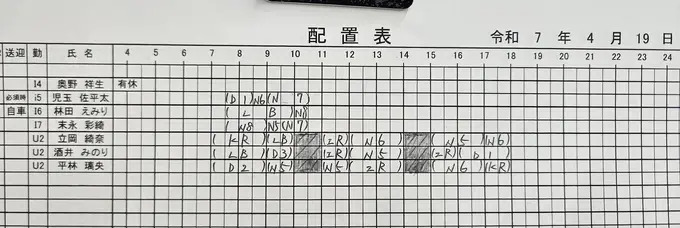 配置表 令和 7 年 4 月 19 日
送迎 勤 氏名 4 5 6 7 8 9 10 11 12 13 14 15 16 17 18 19 20 21 22 23 24
I4 奥野 祥生 有休
必須時 i5 児玉 佐平太 (D1)N6(N 7)
自車 I6 林田 えみり ( L B )
I7 末永 彩綺 ( N8 )N5(N 7)
U2 立岡 綺奈 ( KR )(LB) (2R)( N6 ) ( N5 )(N6)
U2 酒井 みのり ( LB )(D3) (N5)( N5 ) (2R)( D1 )
U2 平林 璃央 ( D2 )(N5) (N5)( 2R ) ( N6 )(KR)